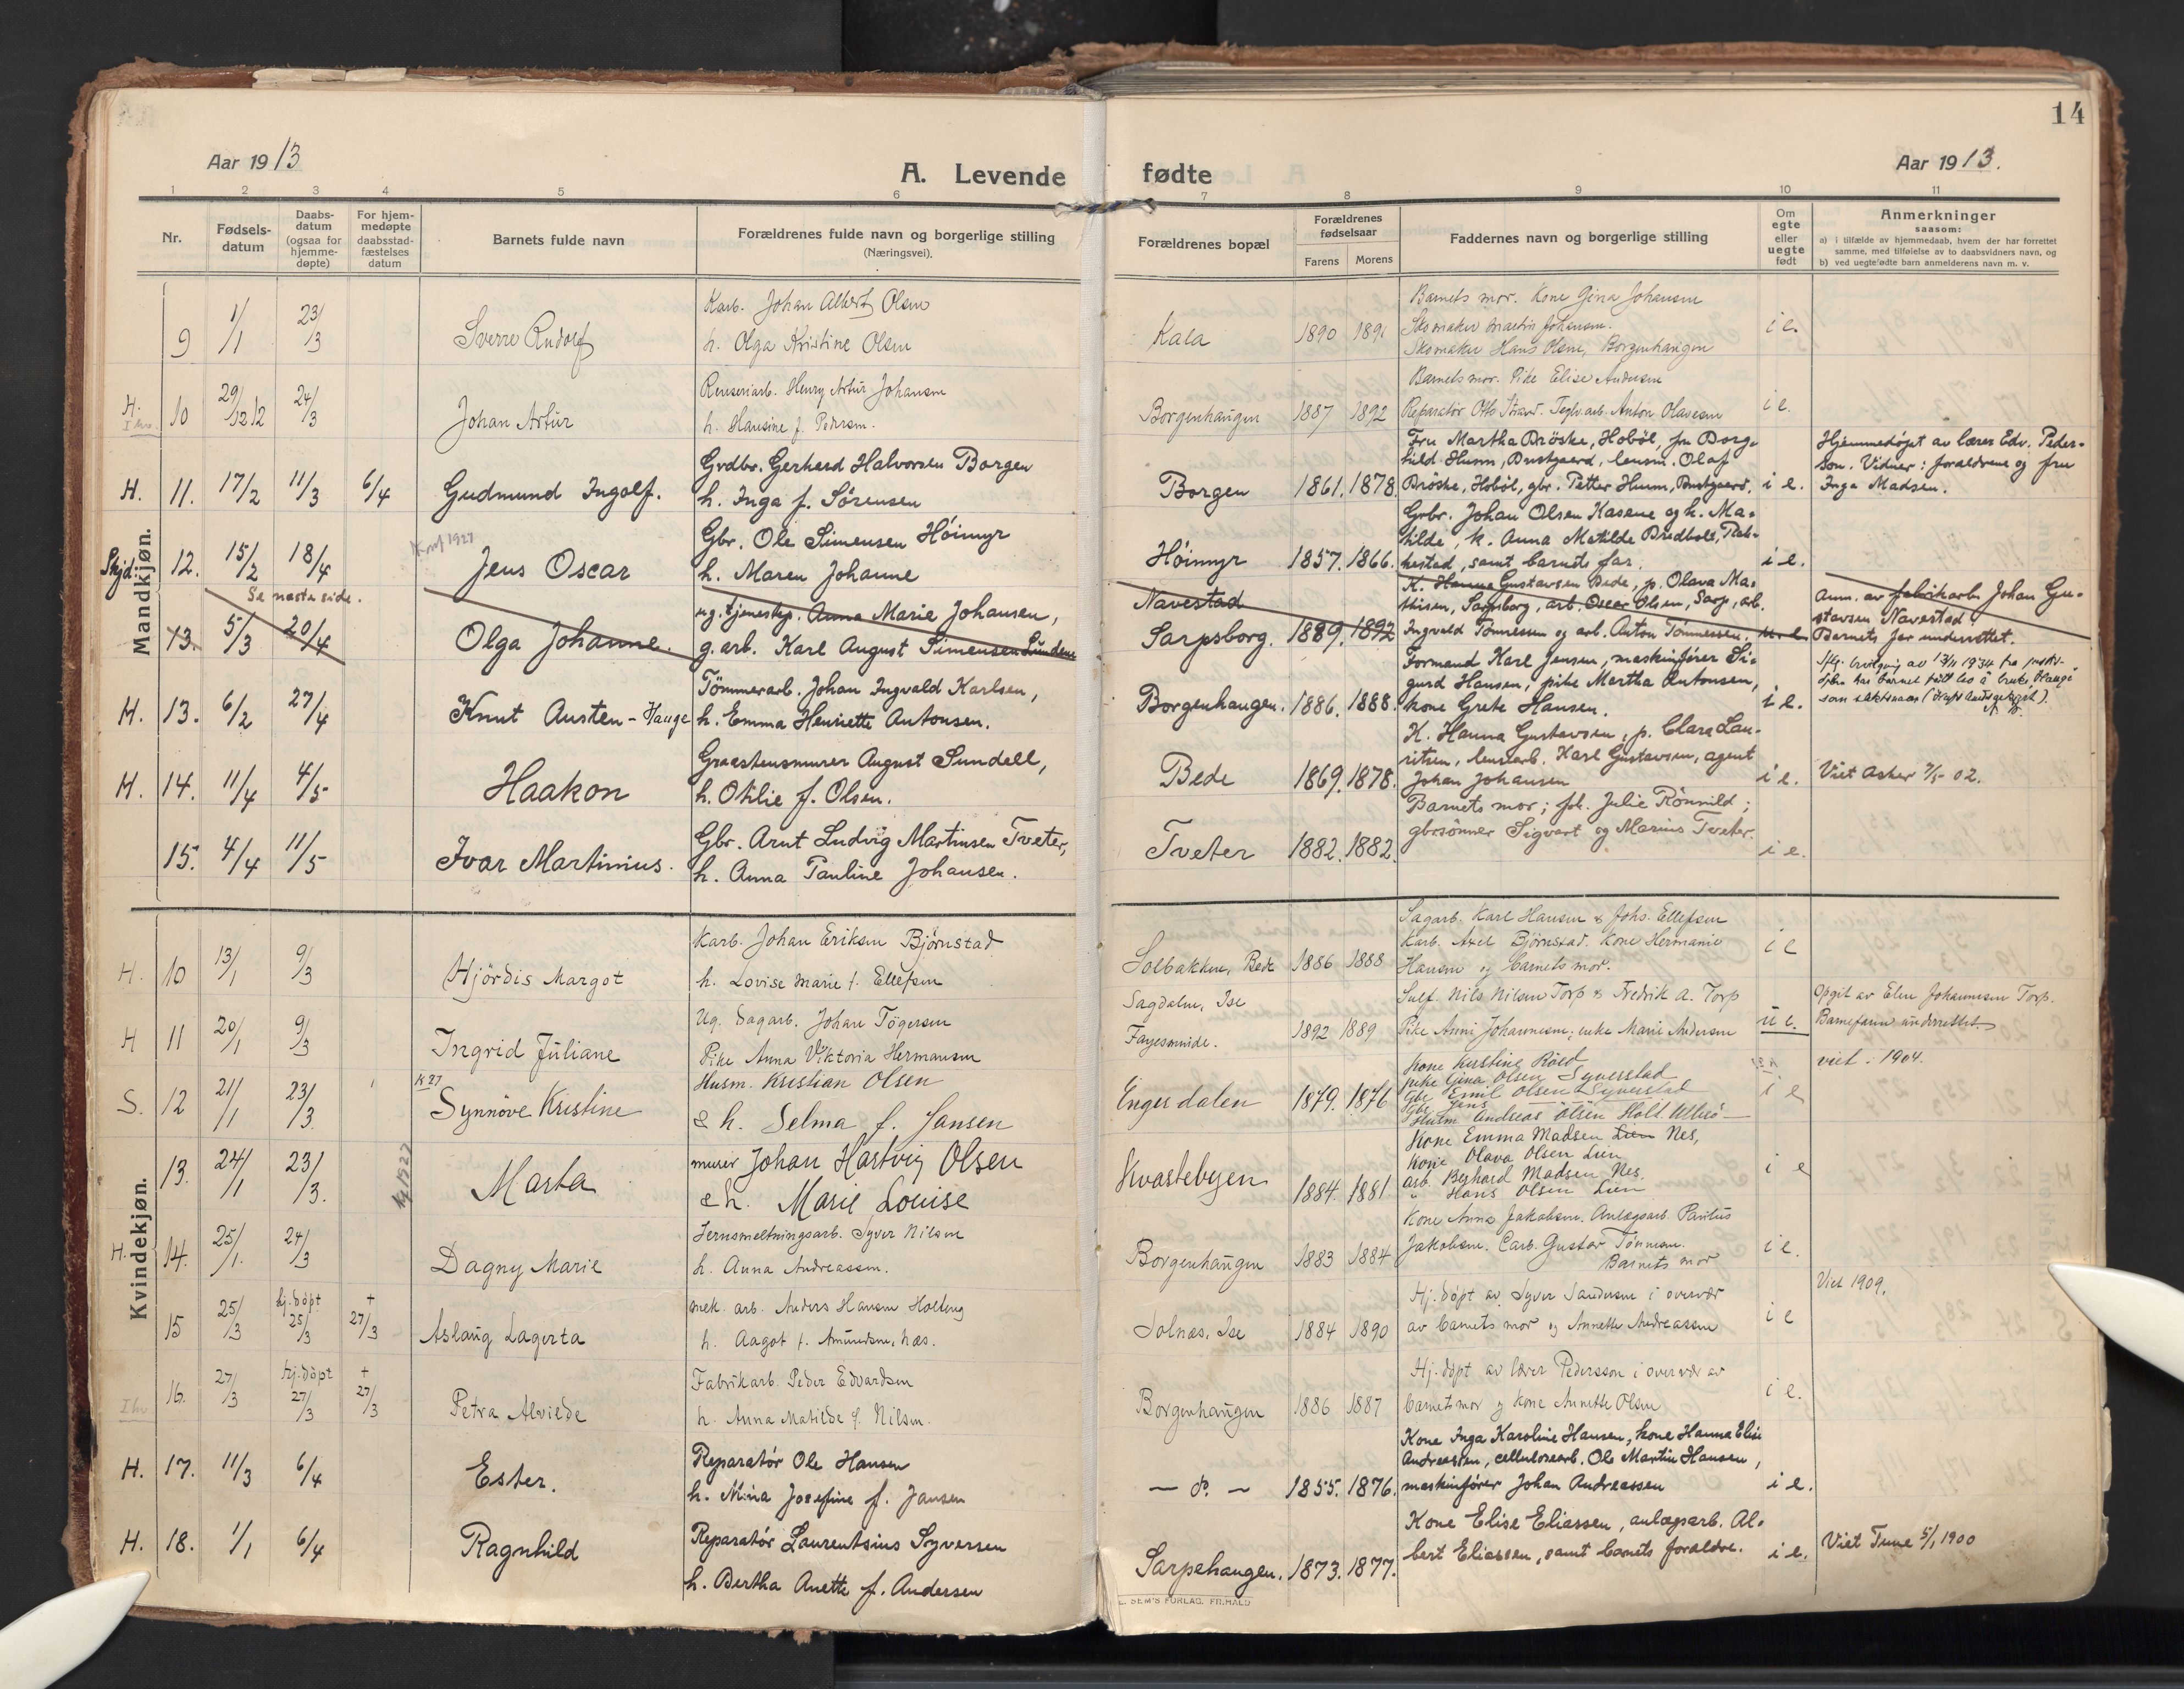 14
Aar 1913
A. Levende fødte
Aar 1913.
1 2 3 4 5 6 7 8 9 10 11
Nr.
Fødsels-
datum
Daabs-
datum
(ogsaa for
hjemme-
døpte)
For hjem-
medøpte
daabsstad-
fæstelses
datum
Barnets fulde navn
Forældrenes fulde navn og borgerlige stilling
(Næringsvei).
Forældrenes bopæl
Forældrenes
fødselsaar
Farens Morens
Faddernes navn og borgerlige stilling
Om
egte
eller
uegte
født
Anmerkninger
saasom:
a) i tilfælde av hjemmedaab, hvem der har forrettet
samme, med tilføielse av to daabsvidners navn, og
b) ved uegtefødte barn anmelderens navn m. v.
Mandkjøn.
9 1/1 23/3 Sverre Rudolf
Karb. Johan Albert Olsen
h. Olga Kristine Olsen
Kala 1890 1891
Barnets mor. Kone Gina Johansen
Skomaker Martin Johansen.
Skomaker Hans Olsen, Borgenhaugen
i e.
H. 10 29/12 12 24/3 Johan Artur
Renseriarb. Henry Artur Johansen
h. Hansine f. Pedersen.
Borgenhaugen 1887 1892
Barnets mor. Pike Elise Andersen
Reparatør Otto Strand. Teglv.arb. Anton Olavesen
i e.
H. 11. 17/2 11/3 6/4 Gudmund Ingolf.
Grdbr. Gerhard Halvorsen Borgen
h. Inga f. Sörensen
Borgen 1861. 1878.
Fru Martha Bröske, Hoböl, fru Borg-
hild Hunn, Bustgaard, lensm. Olaf
Bröske, Hoböl, gbr. Petter Hunn, Bustgaard.
i e.
Hjemmedøpt av lærer Edv. Peder-
son. Vidner: forældrene og fru
Inga Madsen.
Skjd. 12. 15/2 18/4 Jens Oscar
Konf 1927
Gbr. Ole Simensen Höimyr
h. Maren Johanne
Höimyr 1857. 1866.
Grbr. Johan Olsen Kasene og h. Ma-
thilde, k. Anna Matilde Bredholt, Rak-
kestad, samt barnets far.
i e.
Se næste side.
13. 5/3 20/4 Olga Johanne.
ug. tjenestep. Anna Marie Johansen,
g. arb. Karl August Simensen Lunden
Navestad
Sarpsborg. 1889. 1892
K. Hanna Gustavsen Bede, p. Olava Ma-
thisen, Sarpsborg, arb. Oscar Olsen, Sarp, arb.
Ingvald Tönnessen og arb. Anton Tönnessen.
u e
Anm. av fabrikarb. Johan Gu-
stavsen Navestad
Barnets far underrettet.
H. 13. 6/2 27/4 Knut Austen - Hauge
Tömmerarb. Johan Ingvald Karlsen,
h. Emma Henriette Antonsen.
Borgenhaugen. 1886. 1888.
Formand Karl Jensen, maskinfører Si-
gurd Hansen, pike Martha Antonsen,
kone Grete Hansen.
i e.
Iflg. bevilgning av 13/11 1934 fra justis-
dptm. har barnet fått lov å bruke Hauge
som slektsnavn
H. 14. 11/4 4/5 Haakon
Graastensmurer August Sundell,
h. Otilie f. Olsen.
Bede 1869. 1878.
K. Hanna Gustavsen, p. Clara Lau-
ritsen, lenserb. Karl Gustavsen, agent
Johan Johansen
i e.
Viet Asker 7/5 02.
15. 4/4 11/5 Ivar Martinius.
Gbr. Arnt Ludvig Martinsen Tveter,
h. Anna Pauline Johansen.
Tveter 1882. 1882.
Barnets mor; frk. Julie Rönnild;
gbrsönner Sigvart og Marius Tveter.
i e.
Kvindekjøn.
H. 10 13/1 9/3 Hjördis Margot
Karb. Johan Eriksen Björnstad
h. Lovise Marie f. Ellefsen
Solbakken, Bede 1886 1888
Sagarb. Karl Hansen & Johs. Ellefsen
Karb. Axel Björnstad. Kone Hermanie
Hansen og barnets mor.
i e
H 11 20/1 9/3 Ingrid Juliane
Ug. Sagarb. Johan Tögersen
Pike Anna Viktoria Hermansen
Sagdalen, Ise
1892 1889
Sulf. Nils Nilsen Torp & Fredrik A. Torp
Pike Anni Johannesen; enke Marie Andersen
u e.
Opgit av Elen Johannesen Torp.
Barnefaren underrettet.
S. 12 21/1 23/3. Synnöve Kristine
K 27
Husm. Kristian Olsen
& h. Selma f. Jansen
Engerdalen 1879. 1876
Kone Kirstine Röed
pike Gina Olsen Syverstad
Gbr Emil Olsen Syverstad
i e
viet. 1904.
13. 24/1 23/3. Marta
murer Johan Hartvig Olsen
& h. Marie Louise
Kvastebyen 1884. 1881
Kone Emma Madsen Lien Nes,
Kone Olava Olsen Lien
arb. Berhard Madsen Nes.
" Hans Olsen Lien
i e
H. 14. 25/1. 24/3 Dagny Marie
Jernsmeltningsarb. Syver Nilsen
h. Anna Andreassen.
Borgenhaugen 1883 1884
Kone Anna Jakobsen. Anlægsarb. Paulus
Jakobsen. Carb. Gustav Tönnesen.
Barnets mor
i e.
15 25/3 hj. döpt 25/3 + 27/3 Aslaug Lagerta
Mek. arb. Anders Hansen Holteng
h. Aagot f. Amundsen, Næs.
Solnæs, Ise 1884 1890
Hj. döpt av Syver Sandersen i overvær
av barnets mor og Annette Andreassen
i e
Viet 1909.
16. 27/3 hj. döpt 27/3 + 27/3 Petra Alvilde
Fabrikarb. Peder Edvardsen
h. Anna Matilde f. Nilsen.
Borgenhaugen 1886 1887
Hj. döpt av lærer Pedersson i overvær av
barnets mor og kone Annette Olsen
i e.
H. 17. 11/3 6/4 Ester.
Reparatør Ole Hansen
h. Mina Josefine f. Jansen
— do. — 1855. 1876.
Kone Inga Karoline Hansen, kone Hanna Elise
Andreassen, cellulosearb. Ole Martin Hansen,
maskinfører Johan Andreassen
i e.
H. 18. 1/1 6/4 Ragnhild
Reparatør Laurentsius Syversen
h. Bertha Anette f. Andersen
Sarpehaugen. 1873. 1877.
Kone Elise Eliassen, anlægsarb. Al-
bert Eliassen, samt barnets forældre.
i e.
Viet Tune 5/1 1900
E. SEM'S FORLAG. FR.HALD